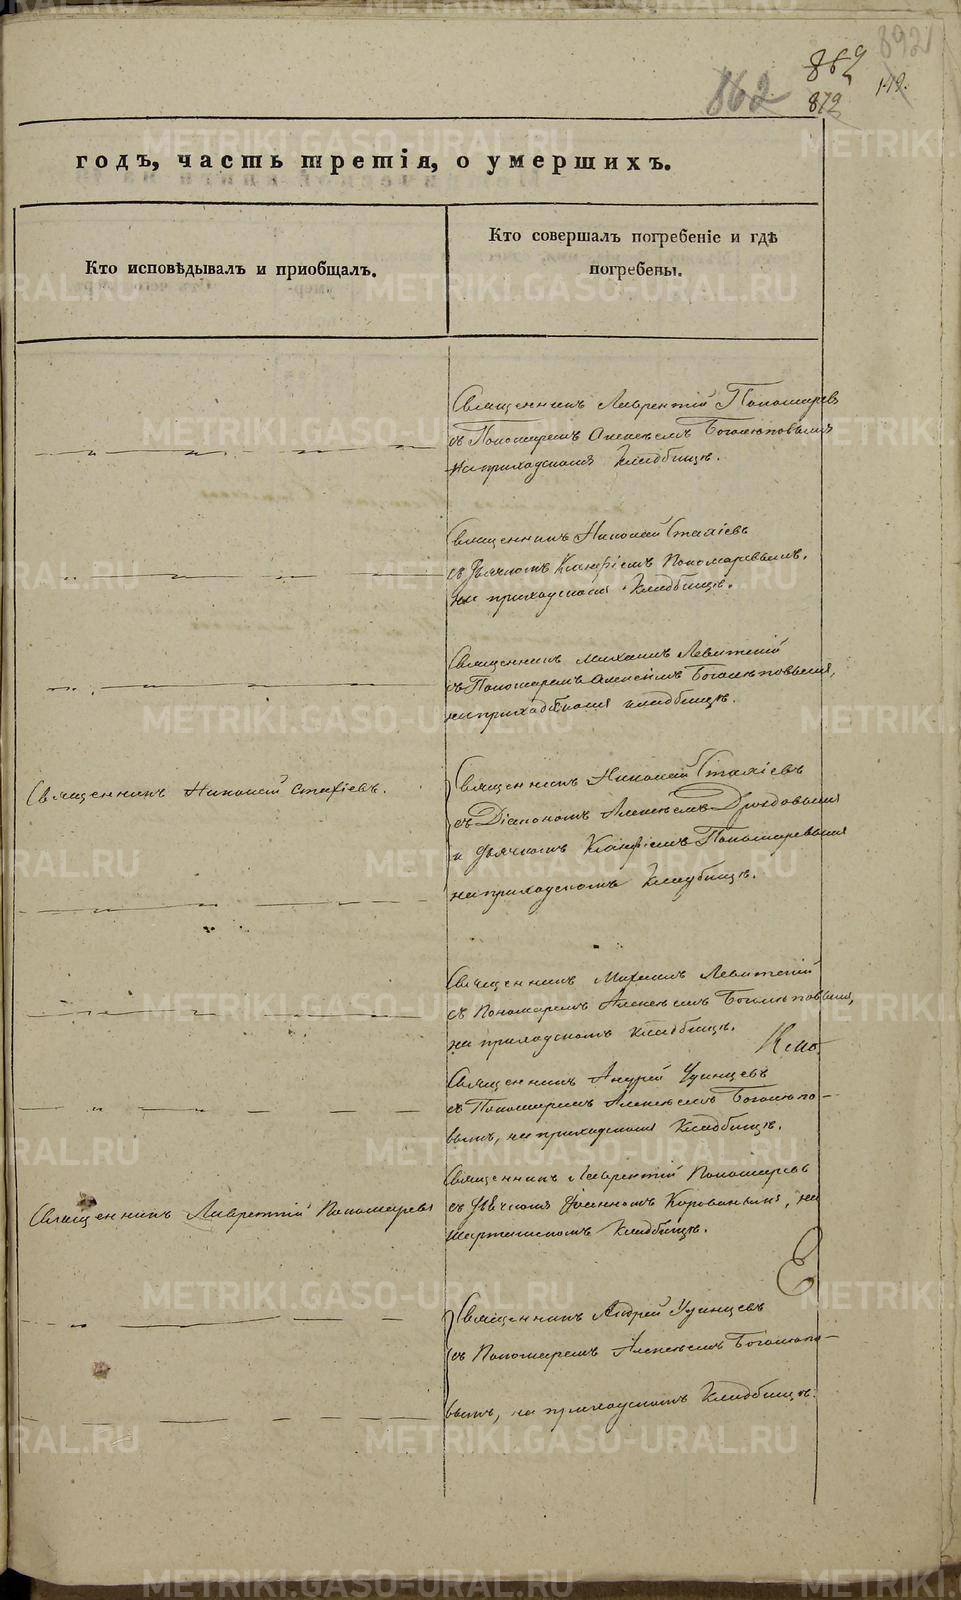 892
869
862
872
142.
годъ, часть третія, о умершихъ.
Кто исповѣдывалъ и приобщалъ.
Кто совершалъ погребеніе и гдѣ
погребены.
Священникъ Лаврентій Пономаревъ
съ Пономаремъ Алексѣемъ Боголюповымъ
на приходскомъ Кладбищѣ.
Священникъ Николай Стахіевъ
съ Дьячкомъ Пономаревымъ.
на приходскомъ Кладбищѣ.
Священникъ Михаилъ Левитскій
съ Пономаремъ Алексѣемъ Боголюповымъ,
на приходскомъ кладбищѣ.
Священникъ Николай Стахіевъ.
Священникъ Николай Стахіевъ
съ Діакономъ Алексѣемъ Дроздовымъ
и Дьячкомъ Пономаревымъ
на приходскомъ Кладбищѣ.
Священникъ Михаилъ Левитскій
съ Пономаремъ Алексѣемъ Боголюповымъ,
на приходскомъ кладбищѣ.
Священникъ Андрей Удинцевъ
съ Пономаремъ Алексѣемъ Боголюпо-
вымъ, на приходскомъ Кладбищѣ.
Священникъ Лаврентій Пономаревъ
Священникъ Лаврентій Пономаревъ
съ Дьячкомъ Іоанномъ, на
Шарташскомъ Кладбищѣ.
Священникъ Андрей Удинцевъ
съ Пономаремъ Алексѣемъ Боголюпо-
вымъ, на приходскомъ Кладбищѣ.
METRIKI.GASO-URAL.RU